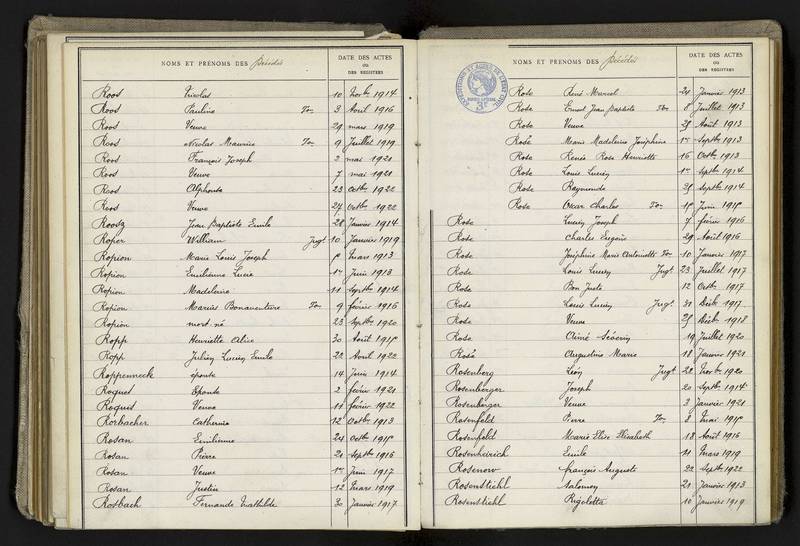 NOMS ET PRÉNOMS DES Décédés DATE DES ACTES
OU
DES REGISTRES
Roos Nicolas 10 Novbre 1914
Roos Pauline Ton 3 Avril 1916
Roos Veuve 29 mars 1919
Roos Nicolas Maurice Ton 9 Juillet 1919
Roos François Joseph 2 mai 1921
Roos Veuve 7 mai 1921
Roos Alphonse 23 octbre 1922
Roos Veuve 27 octbre 1922
Roosz Jean Baptiste Emile 28 Janvier 1914
Roper William Jugt 10 Janvier 1919
Ropion Marie Louis Joseph Mars 1913
Ropion Emilienne Lucie 1er Juin 1913
Ropion Madeleine 11 Septbre 1914
Ropion Marius Bonaventure Ton 9 février 1916
Ropion mort-né 23 Septbre 1920
Ropp Henriette Alice 30 Août 1915
Ropp Julien Lucien Emile 22 Avril 1922
Roppenneck épouse 14 Juin 1914
Roques Epouse 2 février 1921
Roques Veuve 11 février 1922
Rorbacher Catherine 12 Octbre 1913
Rosan Emilienne 24 Octbre 1915
Rosan Pierre 21 Septbre 1916
Rosan Veuve 1er Juin 1917
Rosan Justin 12 Mars 1919
Rosbach Fernande Mathilde 30 Janvier 1917
NOMS ET PRÉNOMS DES Décédés DATE DES ACTES
OU
DES REGISTRES
3F
Rose René Marcel 24 Janvier 1913
Rose Ernest Jean Baptiste Ton 8 Juillet 1913
Rose Veuve 25 Août 1913
Rose Marie Madeleine Joséphine 1er Septbre 1913
Rose Renée Rose Henriette 16 Octbre 1913
Rose Louis Lucien 1er Septbre 1914
Rose Raymonde 25 Septbre 1914
Rose Oscar Charles Ton 15 Juin 1915
Rose Lucien Joseph 7 février 1916
Rose Charles Eugène 29 Août 1916
Rose Joséphine Marie Antoinette Ton 10 Janvier 1917
Rose Louis Lucien Jugt 23 Juillet 1917
Rose Bon Juste 12 Octbre 1917
Rose Louis Lucien Jugt 31 Décbre 1917
Rose Veuve 25 Décbre 1918
Rose Aimé Séverin 19 Juillet 1920
Rosé Augustine Marie 18 Janvier 1921
Rosenberg Léon Jugt 22 Novbre 1920
Rosenberger Joseph 20 Septbre 1914
Rosenberger Veuve 3 Janvier 1921
Rosenfeld Pierre Ton 8 Mai 1915
Rosenfeld Marie Elise Elisabeth 18 Août 1916
Rosenheirich Emile 11 Mars 1919
Rosenow François Auguste 22 Septbre 1922
Rosenstiehl Salomon 21 Janvier 1913
Rosenstiehl Rigoletta 10 Janvier 1919